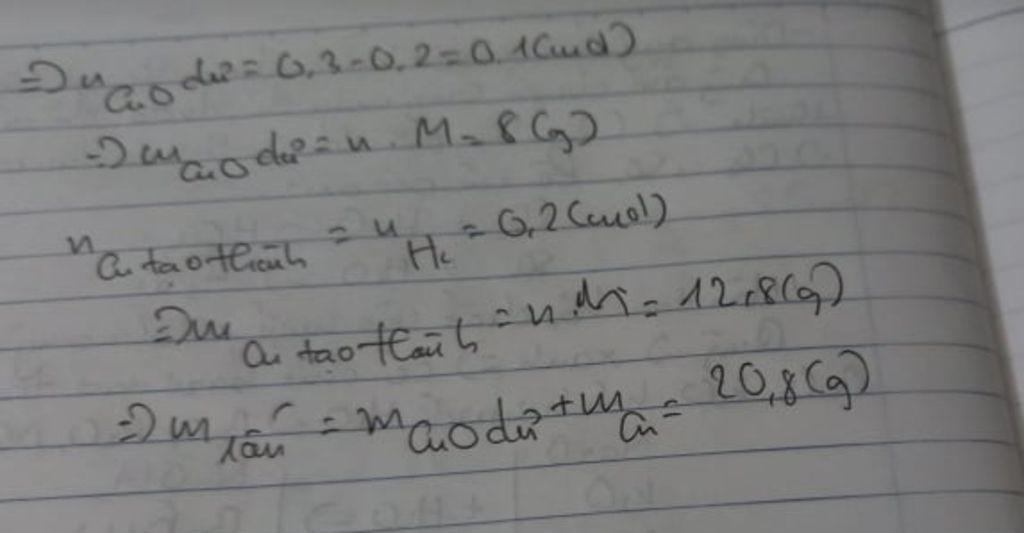 => n CuO dư = 0,3 - 0,2 = 0,1 (mol)
=> m CuO dư = n . M = 8 (g)
n Cu tạo thành = n H₂ = 0,2 (mol)
=> m Cu tạo thành = n . M = 12,8 (g)
=> m rắn = m CuO dư + m Cu = 20,8 (g)